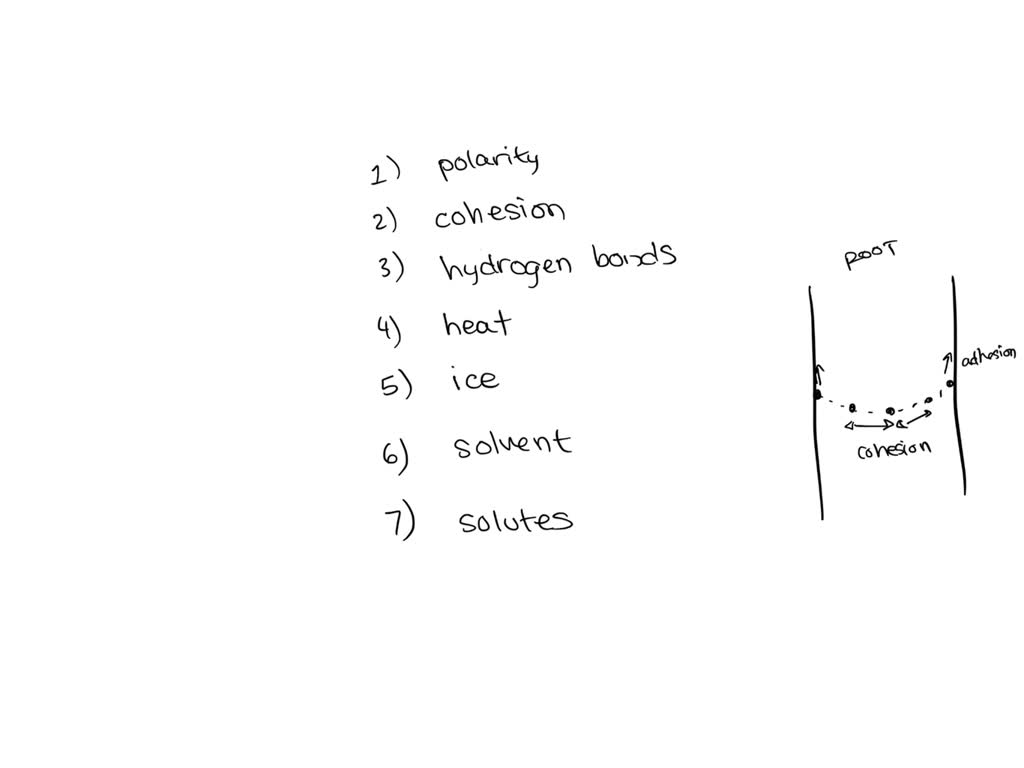 1) polarity
2) cohesion
3) hydrogen bonds
4) heat
5) ice
6) solvent
7) solutes
ROOT
adhesion
cohesion